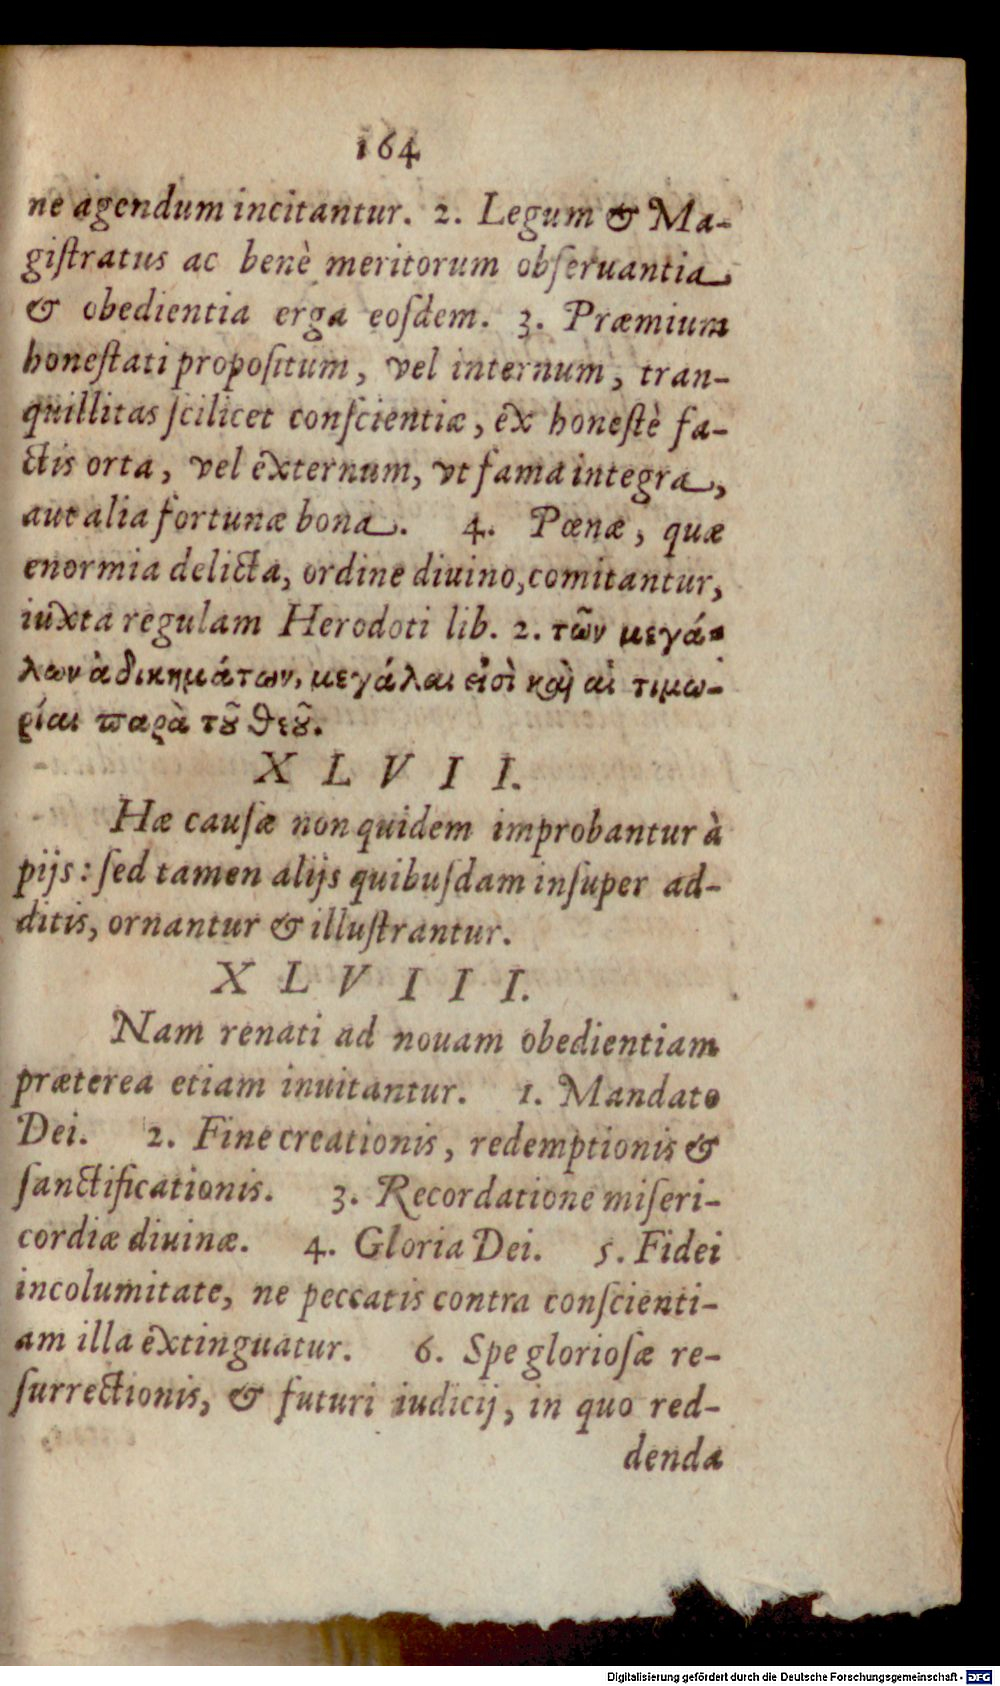 164
ne agendum incitantur. 2. Legum & Ma-
giſtratus ac benè meritorum obſeruantia
& obedientia erga eoſdem. 3. Præmium
honeſtati propoſitum, vel internum, tran-
quillitas ſcilicet conſcientiæ, ex honeſtè fa-
ctis orta, vel externum, vt fama integra,
aut alia fortunæ bona. 4. Pœnæ, quæ
enormia delicta, ordine diuino, comitantur,
iuxta regulam Herodoti lib. 2. τῶν μεγά-
λων ἀδικημάτων, μεγάλαι εἰσὶ καὶ αἱ τιμω-
ρίαι παρὰ τοῦ θεοῦ.
XLVII.
Hæ cauſæ non quidem improbantur à
pijs: ſed tamen alijs quibuſdam inſuper ad-
ditis, ornantur & illuſtrantur.
XLVIII.
Nam renati ad nouam obedientiam
præterea etiam inuitantur. 1. Mandato
Dei. 2. Fine creationis, redemptionis &
ſanctificationis. 3. Recordatione miſeri-
cordiæ diuinæ. 4. Gloria Dei. 5. Fidei
incolumitate, ne peccatis contra conſcienti-
am illa extinguatur. 6. Spe glorioſæ re-
ſurrectionis, & futuri iudicij, in quo red-
denda
Digitalisierung gefördert durch die Deutsche Forschungsgemeinschaft - DFG